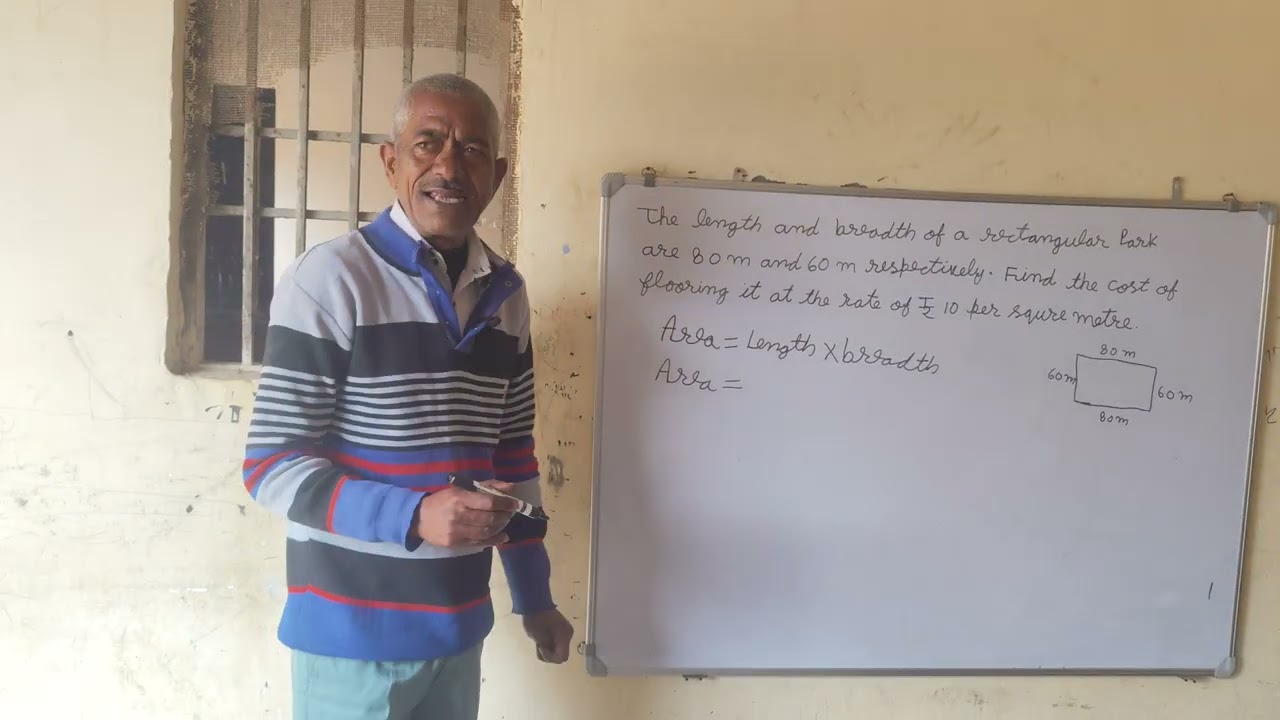 The length and breadth of a rectangular Park
are 80m and 60 m respectively. Find the cost of
flooring it at the rate of ₹ 10 per squre metre.
Area = Length X breadth
Area =
80 m
60m
60m
80m